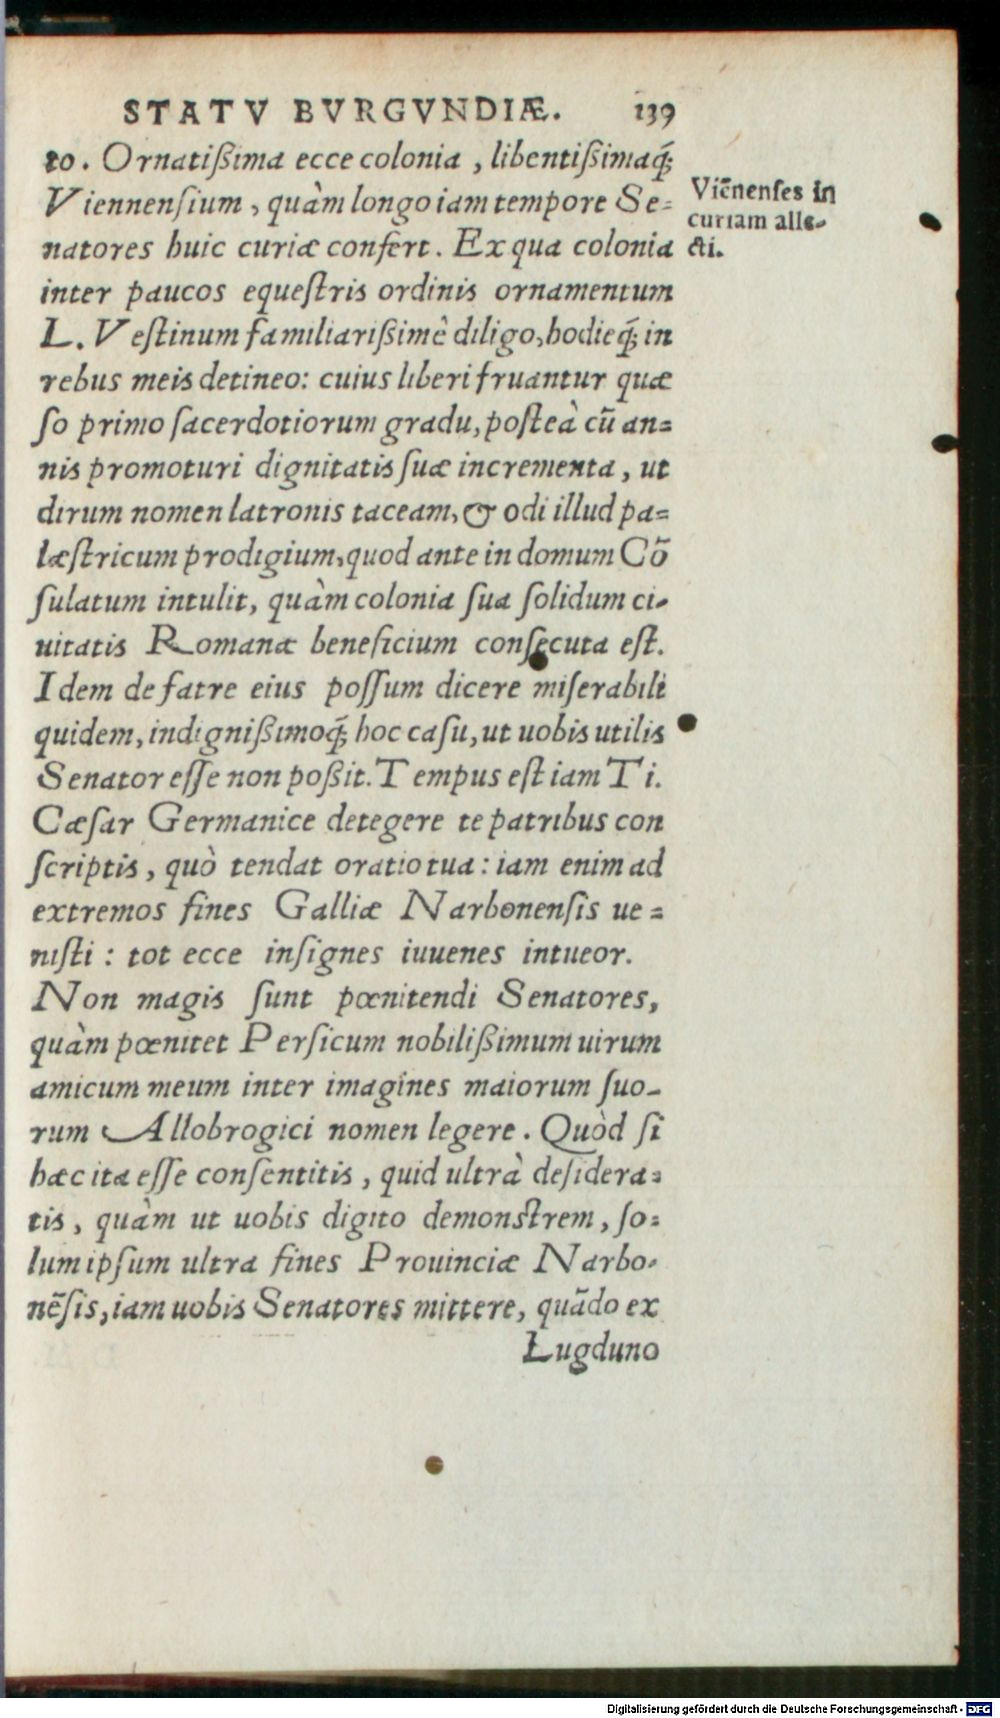 STATV BVRGVNDIÆ. 139
to. Ornatißima ecce colonia, libentißimaq́;
Viennensium, quàm longo iam tempore Se=
natores huic curiæ confert. Ex qua colonia
inter paucos equeſtris ordinis ornamentum
L. Veſtinum familiarißimè diligo, hodieq́; in
rebus meis detineo: cuius liberi fruantur quæ
ſo primo ſacerdotiorum gradu, poſteà cū an=
nis promoturi dignitatis ſuæ incrementa, ut
dirum nomen latronis taceam, & odi illud pa=
læſtricum prodigium, quod ante in domum Cō
ſulatum intulit, quàm colonia ſua ſolidum ci-
uitatis Romanæ beneficium conſecuta eſt.
Idem de fatre eius poſſum dicere miſerabili
quidem, indignißimoq́; hoc caſu, ut uobis utilis
Senator eſſe non poßit. Tempus eſt iam Ti.
Cæſar Germanice detegere te patribus con
ſcriptis, quò tendat oratio tua: iam enim ad
extremos fines Galliæ Narbonenſis ue=
niſti: tot ecce inſignes iuuenes intueor.
Non magis ſunt pœnitendi Senatores,
quàm pœnitet Perſicum nobilißimum uirum
amicum meum inter imagines maiorum ſuo-
rum Allobrogici nomen legere. Quòd ſi
hæc ita eſſe conſentitis, quid ultrà deſidera=
tis, quàm ut uobis digito demonſtrem, ſo=
lum ipſum ultra fines Prouinciæ Narbo-
nēſis, iam uobis Senatores mittere, quādo ex
Lugduno
Viēnenſes in
curiam alle-
cti.
Digitalisierung gefördert durch die Deutsche Forschungsgemeinschaft - DFG